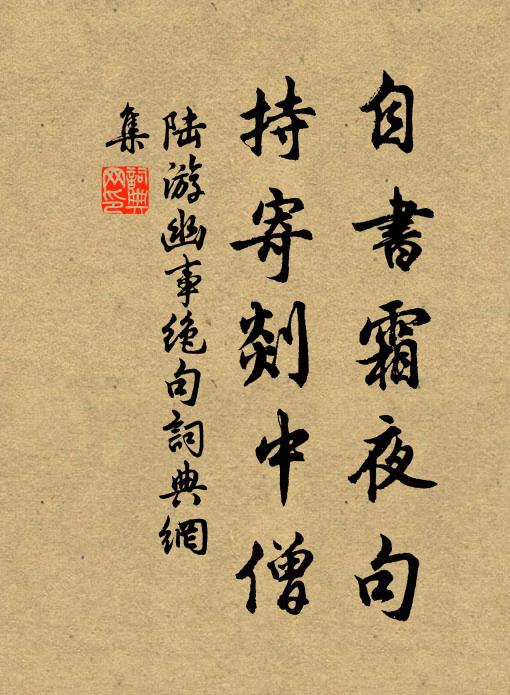 自書霜夜句
持寄剡中僧
陸游幽事绝句詞典網
集
詞典
网印